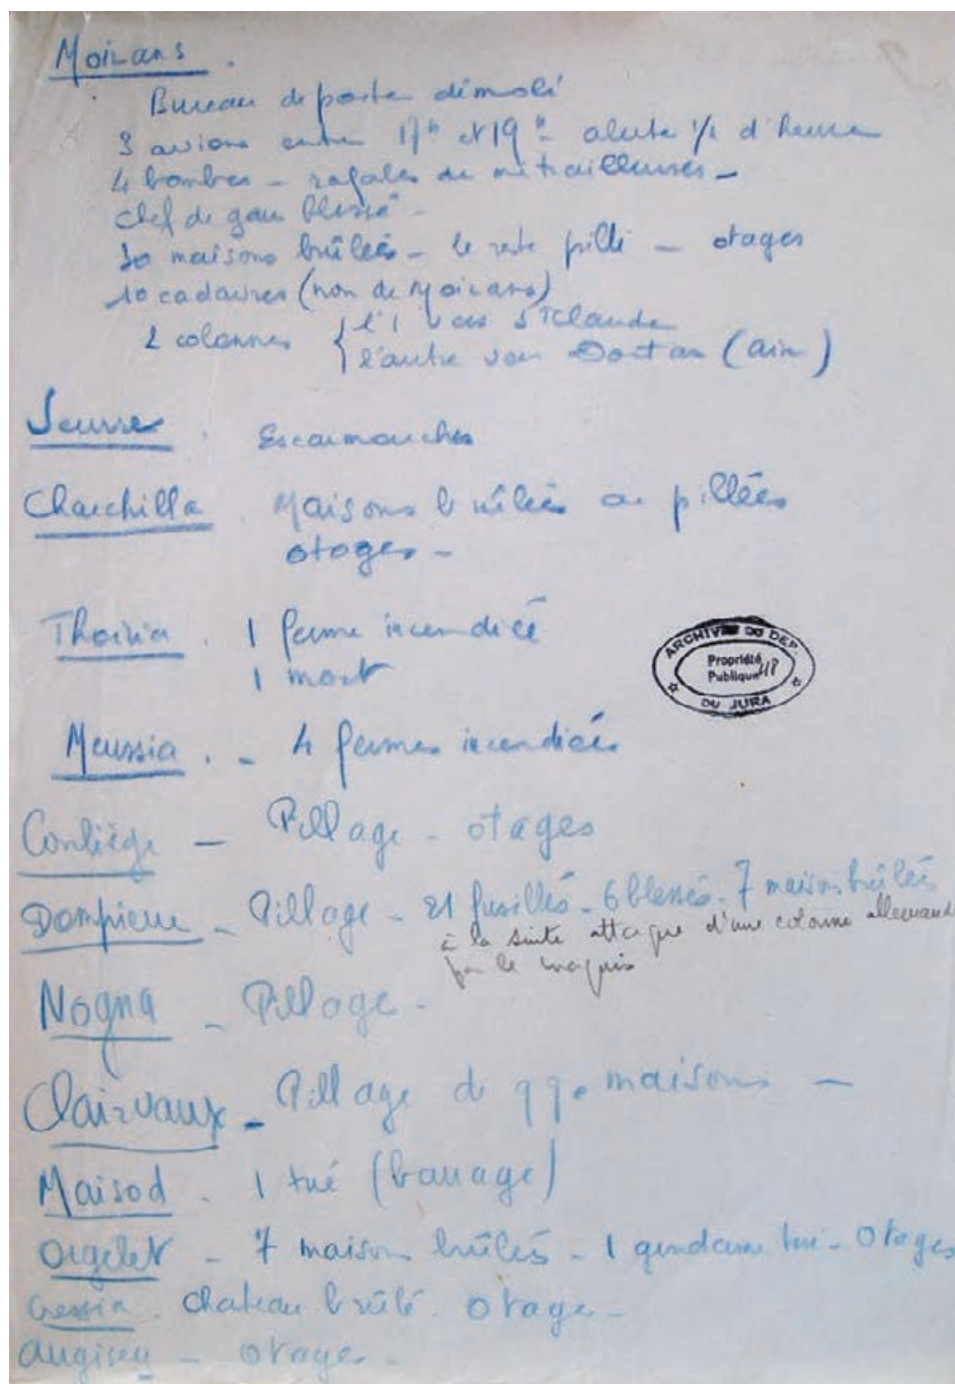 Moirans.
Bureau de poste démoli
3 avions entre 17h et 19h - alerte 1/2 d'heure
4 bombes - rafales de mitrailleuses -
Chef de gare blessé -
30 maisons brûlées - le reste pillé - otages
10 cadavres (non de Moirans)
2 colonnes { l'1 vers St Claude
l'autre vers Dortan (Ain)
Jeurre. Escarmouches
Charchilla. Maisons brûlées ou pillées
otages -
Thoiria. 1 ferme incendiée
1 mort
ARCHIVES DU DEP.
Propriété
Publique 418
DU JURA
Meussia. - 4 fermes incendiées
Conliège - Pillage - otages
Dompierre - Pillage - 21 fusillés - 6 blessés - 7 maisons brûlées
à la suite attaque d'une colonne allemande
par le maquis
Nogna - Pillage -
Clairvaux - Pillage de qq. maisons -
Maisod. 1 tué (barrage)
Orgelet - 7 maisons brûlées - 1 gendarme tué - Otages
Cressia. Chateau brûlé. Otages -
Augisey - otages -